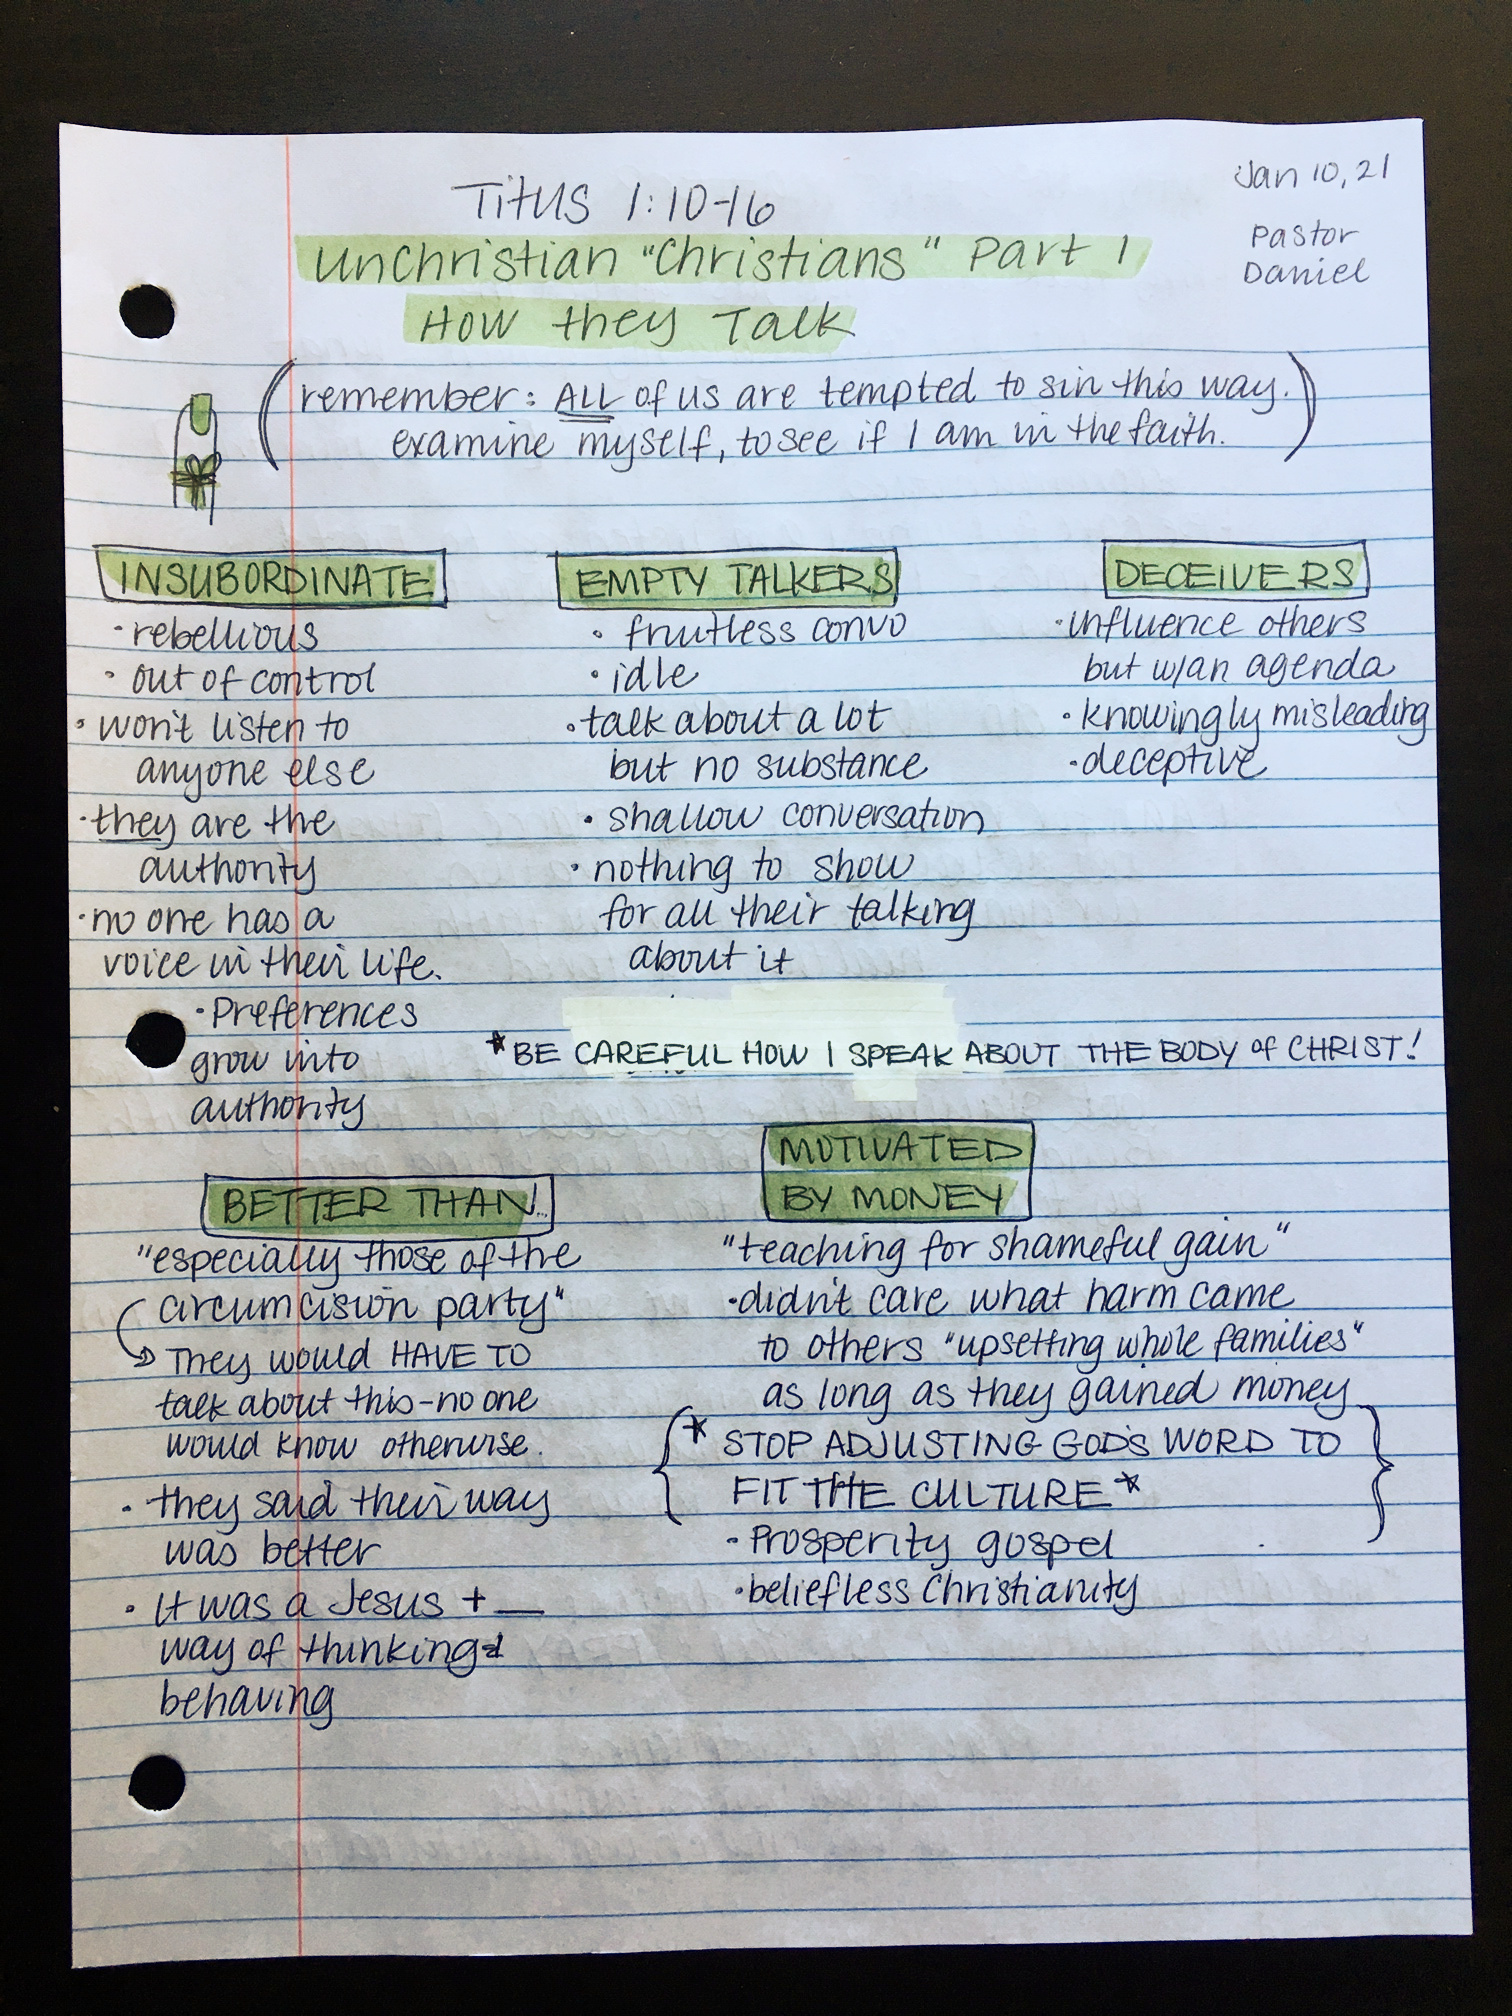 Jan 10, 21
Pastor
Daniel
Titus 1:10-16
Unchristian "Christians" Part 1
How they Talk
(remember: ALL of us are tempted to sin this way.
examine myself, to see if I am in the faith.)
INSUBORDINATE
· rebellious
· out of control
· won't listen to
anyone else
· they are the
authority
· no one has a
voice in their life.
· Preferences
grow into
authority
EMPTY TALKERS
· fruitless convo
· idle
· talk about a lot
but no substance
· shallow conversation
· nothing to show
for all their talking
about it
DECEIVERS
· influence others
but w/an agenda
· knowingly misleading
· deceptive
*BE CAREFUL HOW I SPEAK ABOUT THE BODY of CHRIST!
BETTER THAN...
"especially those of the
circumcision party"
They would HAVE TO
talk about this - no one
would know otherwise.
· they said their way
was better
· It was a Jesus + __
way of thinking &
behaving
MOTIVATED
BY MONEY
"teaching for shameful gain"
· didn't care what harm came
to others "upsetting whole families"
as long as they gained money
{* STOP ADJUSTING GOD'S WORD TO
FIT THE CULTURE *}
· Prosperity gospel
· beliefless Christianity